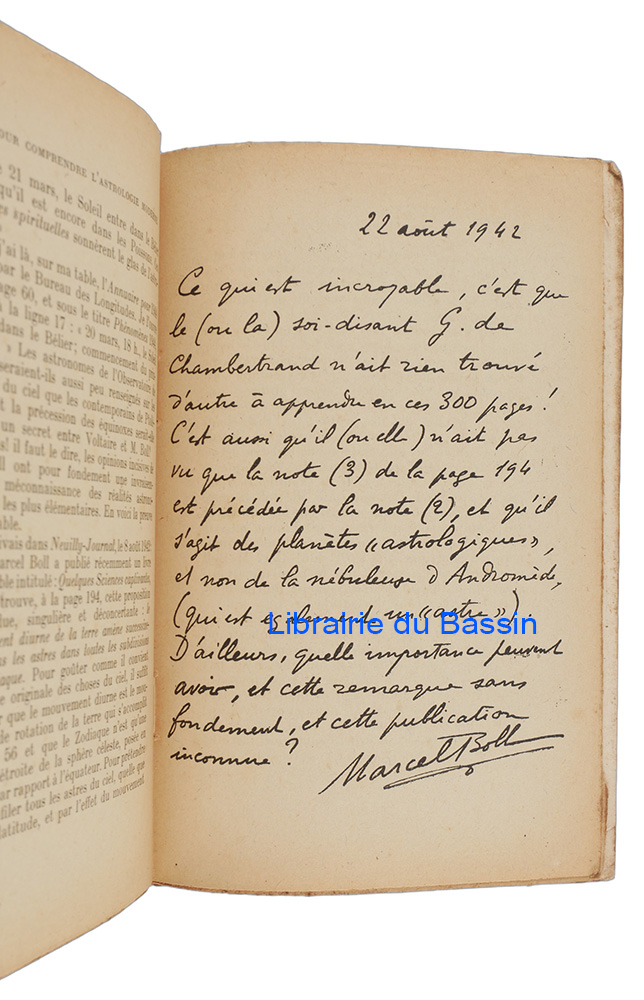 OUR COMPRENDRE L'ASTROLOGIE MODERNE
21 mars, le Soleil entre dans le
qu'il est encore dans les Poissons
es spirituelles sonnèrent le glas de
j'ai là, sur ma table, l'Annuaire pour
par le Bureau des Longitudes. Je
age 60, et sous le titre Phénomènes
à la ligne 17 : « 20 mars, 18 h., le
dans le Bélier; commencement du
» Les astronomes de l'Observatoire
seraient-ils aussi peu renseignés sur
du ciel que les contemporains de
t la précession des équinoxes
un secret entre Voltaire et M. Boll
s! il faut le dire, les opinions incisives
ll ont pour fondement une
méconnaissance des réalités
les plus élémentaires. En voici la preuve
able.
ivais dans Neuilly-Journal, le 8 août 1942
arcel Boll a publié récemment un livre
able intitulé : Quelques Sciences captivantes,
trouve, à la page 194, cette proposition
lue, singulière et déconcertante : le
ent diurne de la terre amène
les astres dans toutes les subdivisions
aque. Pour goûter comme il convient
e originale des choses du ciel, il suffit
r que le mouvement diurne est le
de rotation de la terre qui s'accomplit
56 et que le Zodiaque n'est qu'une
étroite de la sphère céleste, posée en
par rapport à l'équateur. Pour prétendre
filer tous les astres du ciel, quelle que
latitude, et par l'effet du mouvement
22 août 1942
Ce qui est incroyable, c'est que
le (ou la) soi-disant G. de
Chambertrand n'ait rien trouvé
d'autre à apprendre en ces 300 pages !
C'est aussi qu'il (ou elle) n'ait pas
vu que la note (3) de la page 194
est précédée par la note (2), et qu'il
s'agit des planètes «astrologiques»,
et non de la nébuleuse d'Andromède,
(qui est également un «astre»).
Librairie du Bassin
D'ailleurs, quelle importance peuvent
avoir, et cette remarque sans
fondement, et cette publication
inconnue ?
Marcel Boll